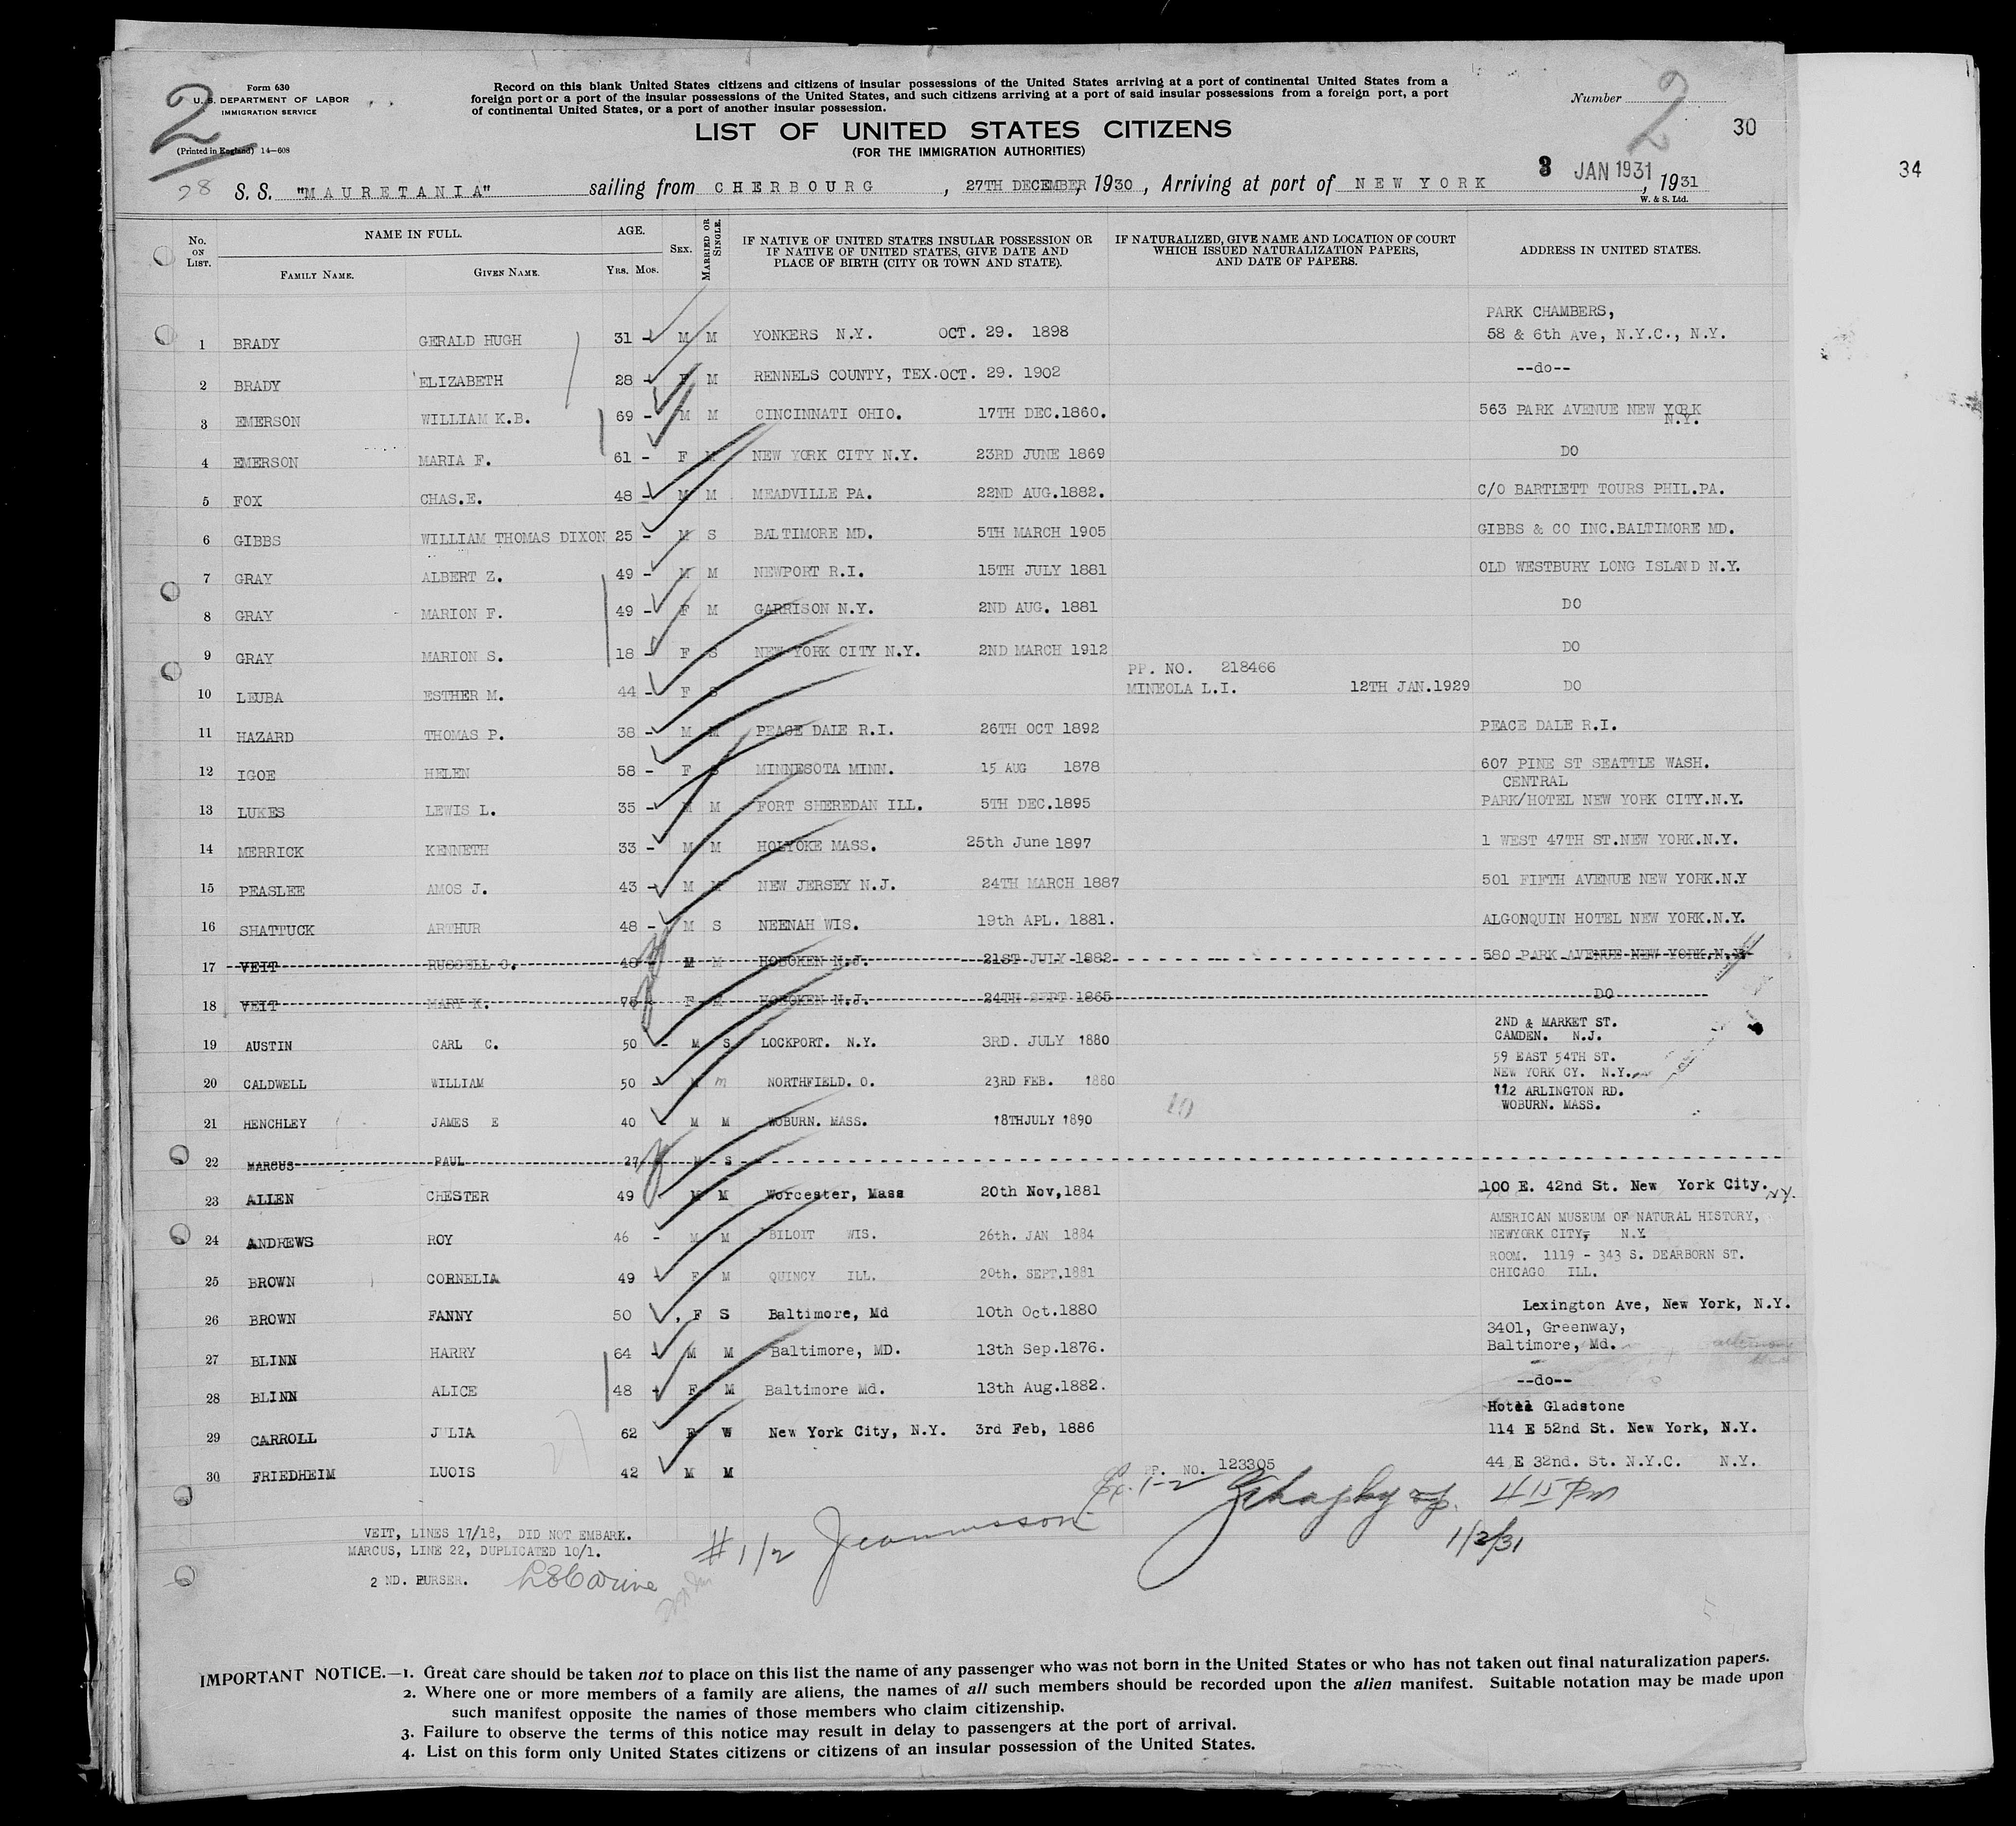 2
Form 630
U. S. DEPARTMENT OF LABOR
IMMIGRATION SERVICE
(Printed in England) 14—608
28
Record on this blank United States citizens and citizens of insular possessions of the United States arriving at a port of continental United States from a
foreign port or a port of the insular possessions of the United States, and such citizens arriving at a port of said insular possessions from a foreign port, a port
of continental United States, or a port of another insular possession.
LIST OF UNITED STATES CITIZENS
(FOR THE IMMIGRATION AUTHORITIES)
Number
2
30
34
S. S. "MAURETANIA" sailing from CHERBOURG, 27TH DECEMBER, 1930, Arriving at port of NEW YORK 3 JAN 1931, 1931
W. & S. Ltd.
No. ON LIST. NAME IN FULL. FAMILY NAME. GIVEN NAME. AGE. YRS. MOS. SEX. MARRIED OR SINGLE. IF NATIVE OF UNITED STATES INSULAR POSSESSION OR IF NATIVE OF UNITED STATES, GIVE DATE AND PLACE OF BIRTH (CITY OR TOWN AND STATE). IF NATURALIZED, GIVE NAME AND LOCATION OF COURT WHICH ISSUED NATURALIZATION PAPERS, AND DATE OF PAPERS. ADDRESS IN UNITED STATES.
PARK CHAMBERS,
1 BRADY GERALD HUGH 31 - M M YONKERS N.Y. OCT. 29. 1898 58 & 6th Ave, N.Y.C., N.Y.
2 BRADY ELIZABETH 28 - F M RENNELS COUNTY, TEX. OCT. 29. 1902 --do--
3 EMERSON WILLIAM K.B. 69 - M M CINCINNATI OHIO. 17TH DEC.1860. 563 PARK AVENUE NEW YORK N.Y.
4 EMERSON MARIA F. 61 - F M NEW YORK CITY N.Y. 23RD JUNE 1869 DO
5 FOX CHAS.E. 48 - M M MEADVILLE PA. 22ND AUG.1882. C/O BARTLETT TOURS PHIL.PA.
6 GIBBS WILLIAM THOMAS DIXON 25 - M S BALTIMORE MD. 5TH MARCH 1905 GIBBS & CO INC.BALTIMORE MD.
7 GRAY ALBERT Z. 49 - M M NEWPORT R.I. 15TH JULY 1881 OLD WESTBURY LONG ISLAND N.Y.
8 GRAY MARION F. 49 - F M GARRISON N.Y. 2ND AUG. 1881 DO
9 GRAY MARION S. 18 - F S NEW YORK CITY N.Y. 2ND MARCH 1912 DO
PP. NO. 218466
10 LEUBA ESTHER M. 44 - F S MINEOLA L.I. 12TH JAN.1929 DO
11 HAZARD THOMAS P. 38 - M M PEACE DALE R.I. 26TH OCT 1892 PEACE DALE R.I.
12 IGOE HELEN 58 - F S MINNESOTA MINN. 15 AUG 1878 607 PINE ST SEATTLE WASH.
CENTRAL
13 LUKES LEWIS L. 35 - M M FORT SHEREDAN ILL. 5TH DEC.1895 PARK/HOTEL NEW YORK CITY.N.Y.
14 MERRICK KENNETH 33 - M M HOLYOKE MASS. 25th June 1897 1 WEST 47TH ST.NEW YORK.N.Y.
15 PEASLEE AMOS J. 43 - M M NEW JERSEY N.J. 24TH MARCH 1887 501 FIFTH AVENUE NEW YORK.N.Y
16 SHATTUCK ARTHUR 48 - M S NEENAH WIS. 19th APL. 1881. ALGONQUIN HOTEL NEW YORK.N.Y.
17 VEIT RUSSELL C. 48 - M M HOBOKEN N.J. 21ST JULY 1882 580 PARK AVENUE NEW YORK.N.Y.
18 VEIT MARY K. 75 - F M HOBOKEN N.J. 24TH SEPT 1865 DO
2ND & MARKET ST.
19 AUSTIN CARL C. 50 - M S LOCKPORT. N.Y. 3RD. JULY 1880 CAMDEN. N.J.
59 EAST 54TH ST.
20 CALDWELL WILLIAM 50 - M m NORTHFIELD. O. 23RD FEB. 1880 NEW YORK CY. N.Y.
112 ARLINGTON RD.
WOBURN. MASS.
21 HENCHLEY JAMES E 40 - M M WOBURN. MASS. 18THJULY 1890
10
22 MARCUS PAUL 27 M S
23 ALLEN CHESTER 49 - M M Worcester, Mass 20th Nov,1881 100 E. 42nd St. New York City. N.Y.
AMERICAN MUSEUM OF NATURAL HISTORY,
24 ANDREWS ROY 46 - M M BILOIT WIS. 26th. JAN 1884 NEWYORK CITY, N.Y.
ROOM. 1119 - 343 S. DEARBORN ST.
25 BROWN CORNELIA 49 - F M QUINCY ILL. 20th. SEPT.1881 CHICAGO ILL.
26 BROWN FANNY 50 F S Baltimore, Md 10th Oct.1880 Lexington Ave, New York, N.Y.
3401, Greenway,
27 BLINN HARRY 64 - M M Baltimore, MD. 13th Sep.1876. Baltimore, Md.
28 BLINN ALICE 48 - F M Baltimore Md. 13th Aug.1882. --do--
Hotel Gladstone
29 CARROLL JULIA 62 F W New York City, N.Y. 3rd Feb, 1886 114 E 52nd St. New York, N.Y.
30 FRIEDHEIM LUOIS 42 M M PP. NO. 123305 44 E 32nd. St. N.Y.C. N.Y.
4 15 Pm
1/2/31
VEIT, LINES 17/18, DID NOT EMBARK.
MARCUS, LINE 22, DUPLICATED 10/1.
2 ND. PURSER.
# 1/2
IMPORTANT NOTICE.—1. Great care should be taken not to place on this list the name of any passenger who was not born in the United States or who has not taken out final naturalization papers.
2. Where one or more members of a family are aliens, the names of all such members should be recorded upon the alien manifest. Suitable notation may be made upon
such manifest opposite the names of those members who claim citizenship.
3. Failure to observe the terms of this notice may result in delay to passengers at the port of arrival.
4. List on this form only United States citizens or citizens of an insular possession of the United States.